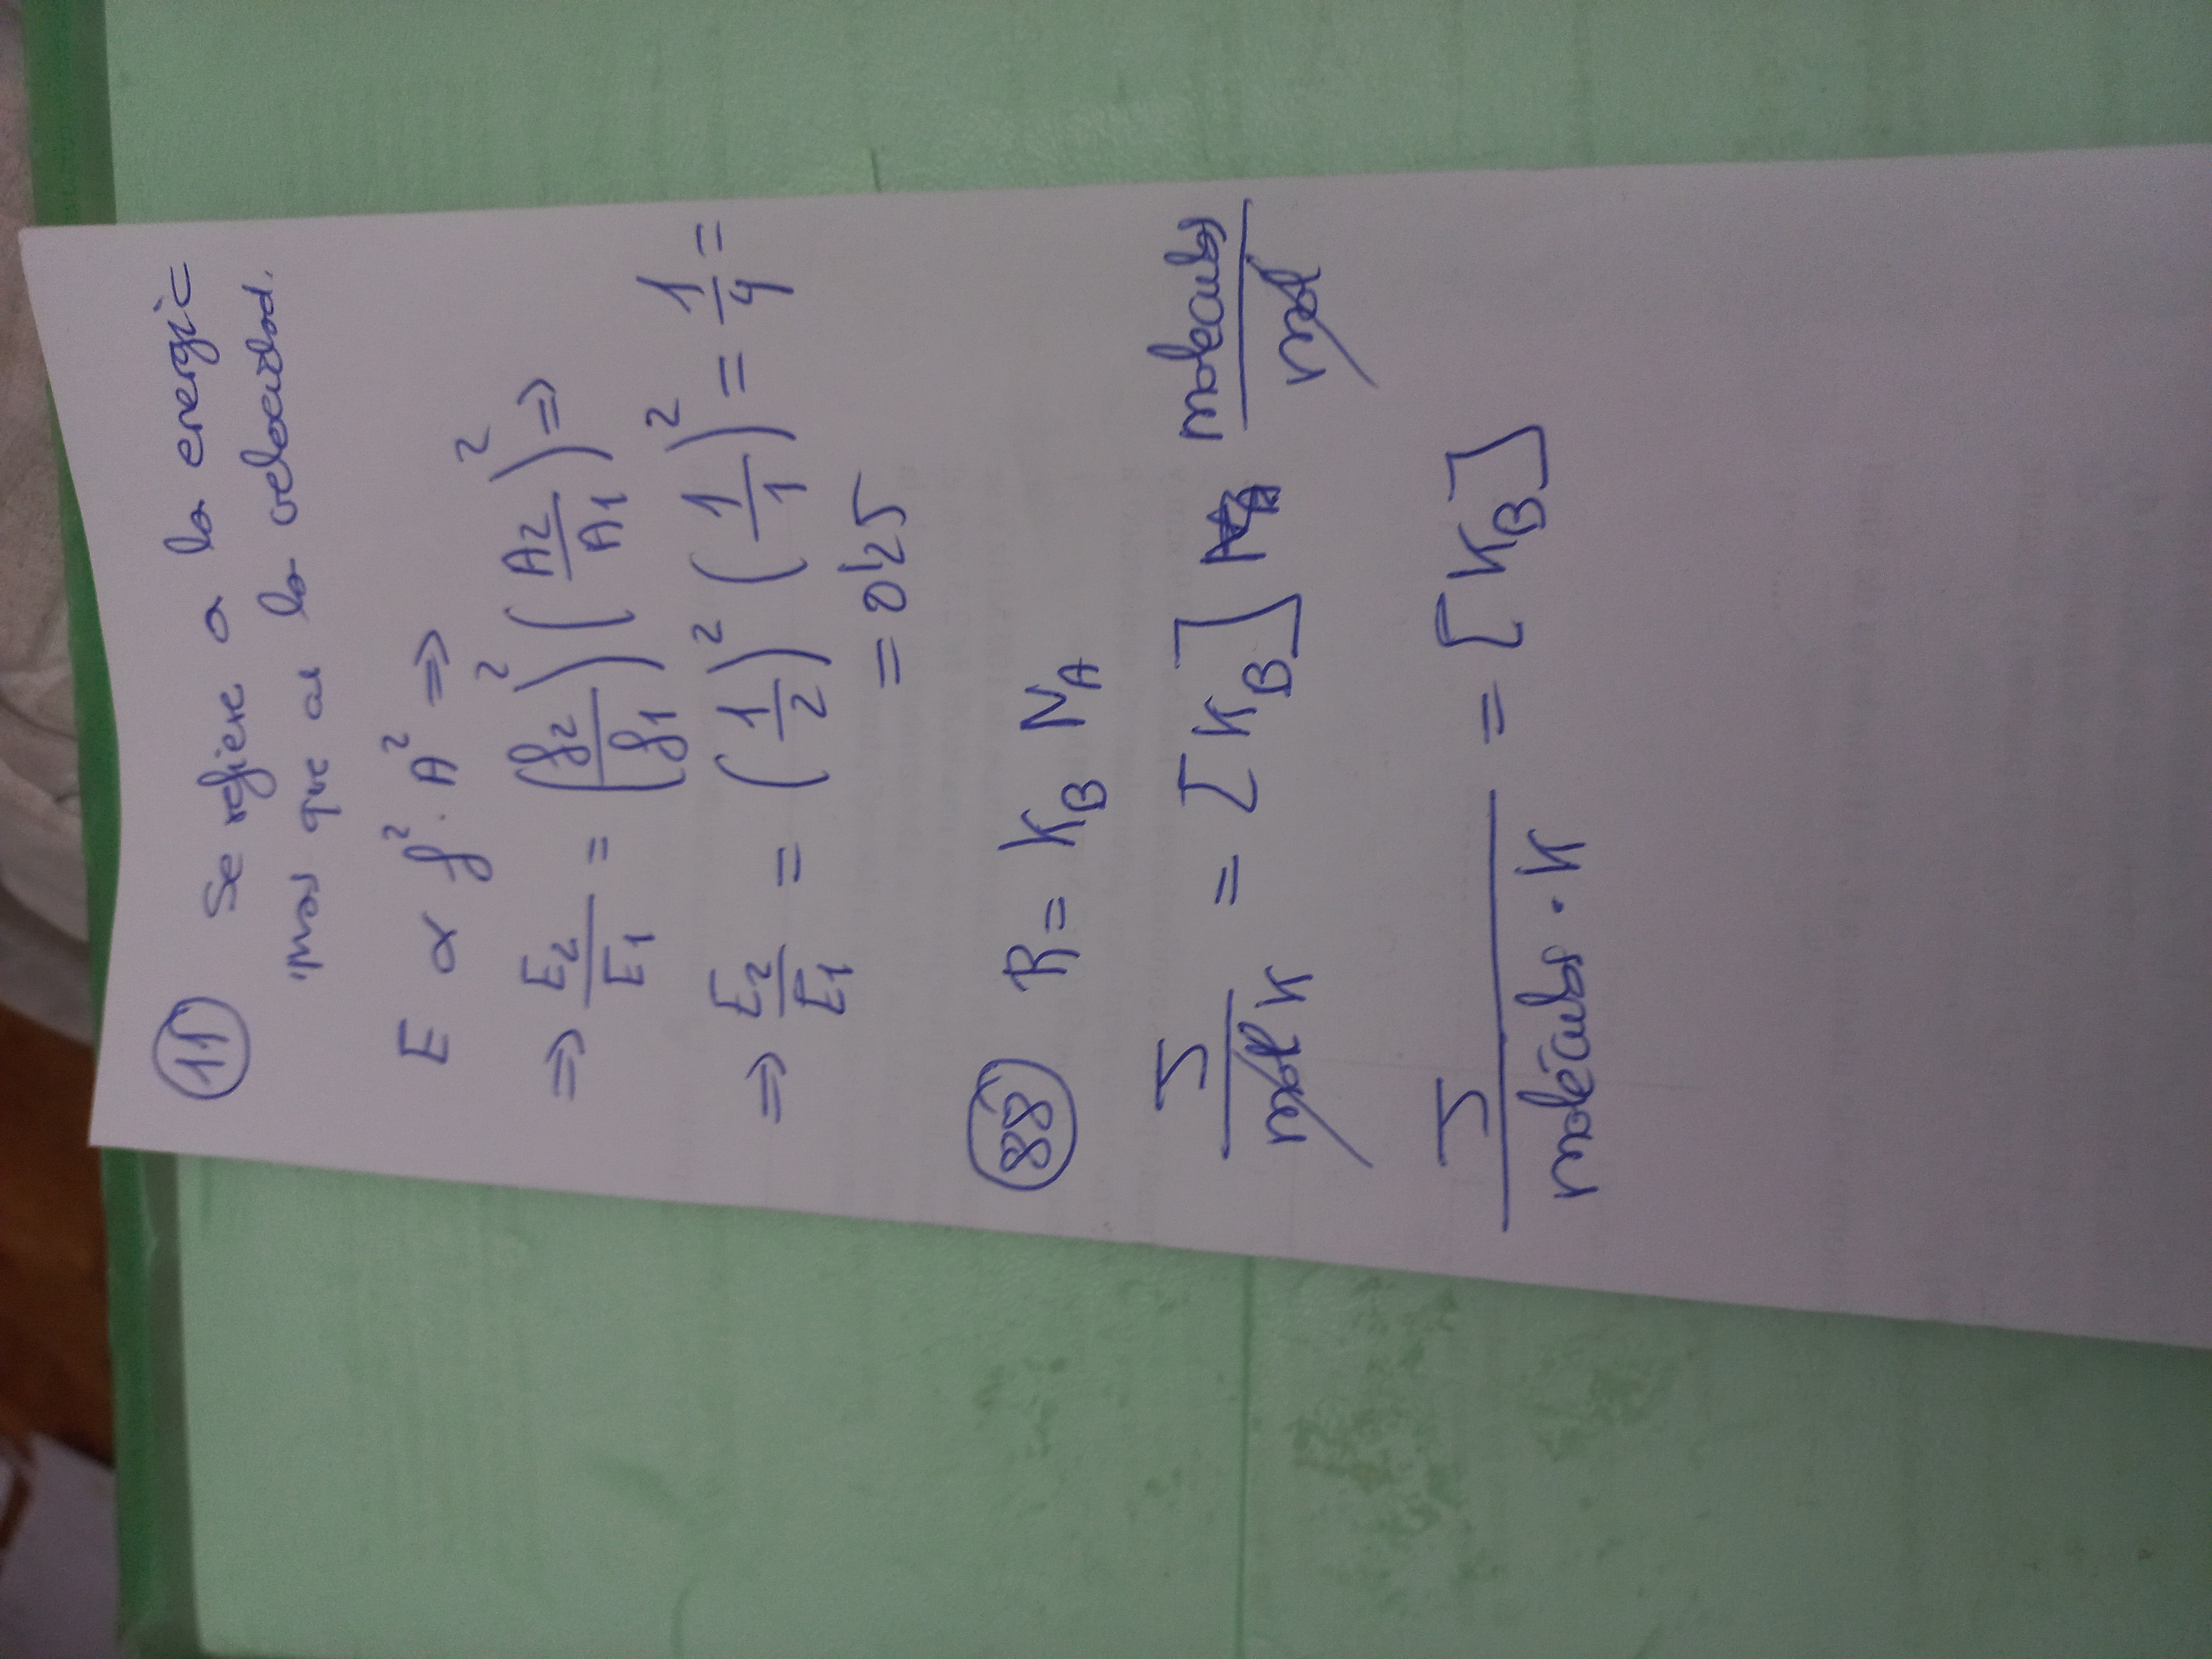 11 Se refiere a la energía
mas que a la velocidad.
E α f² · A² ⇒
⇒ E₂/E₁ = (f₂/f₁)² (A₂/A₁)² ⇒
⇒ E₂/E₁ = (1/2)² (1/1)² = 1/4 =
= 0'25
88 R = K_B N_A
J/(mol K) = [K_B] moléculas/mol
J/(moléculas · K) = [K_B]